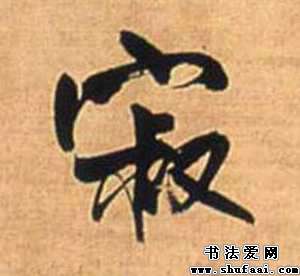 寂
书法爱网
www.shufaai.com